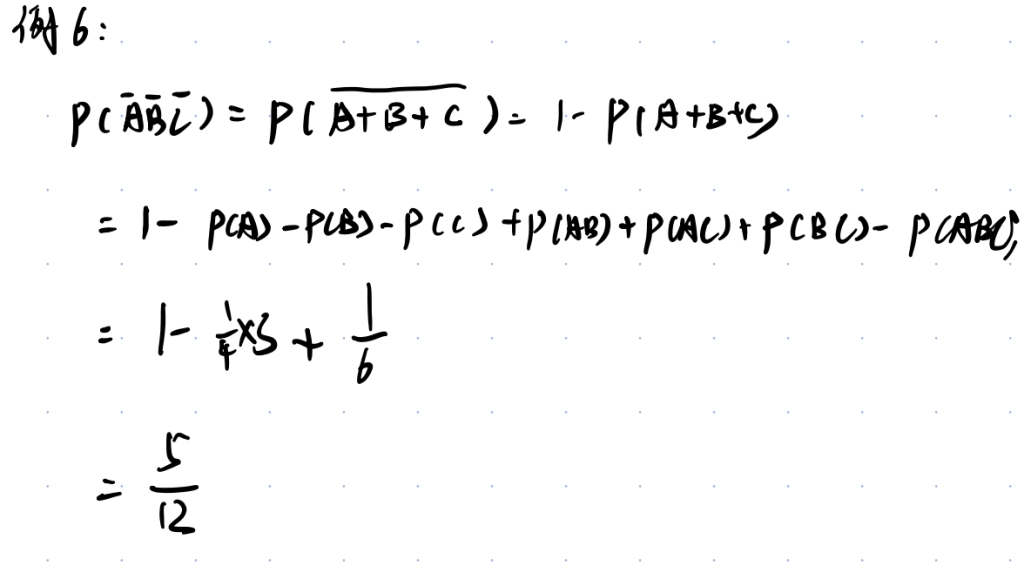 例6:
P(A̅B̅C̅) = P(\overline{A+B+C}) = 1 - P(A+B+C)
= 1 - P(A) - P(B) - P(C) + P(AB) + P(AC) + P(BC) - P(ABC)
= 1 - 1/4 × 3 + 1/6
= 5/12